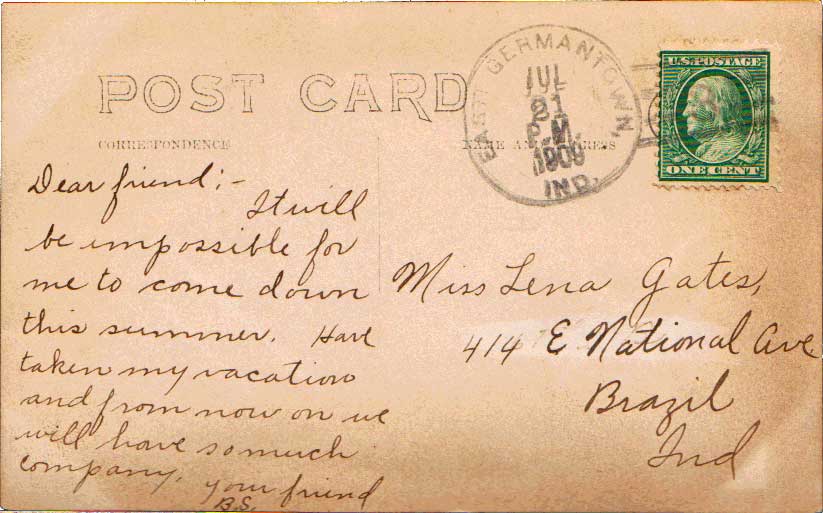 POST CARD
EAST GERMANTOWN, IND.
JUL
21
P.M.
1909
U.S. POSTAGE
ONE CENT
CORRESPONDENCE
NAME AND ADDRESS
Dear friend;-
It will
be impossible for
me to come down
this summer. Have
taken my vacation
and from now on we
will have so much
company. your friend
B.S.
Miss Lena Gates,
414 E National Ave
Brazil
Ind